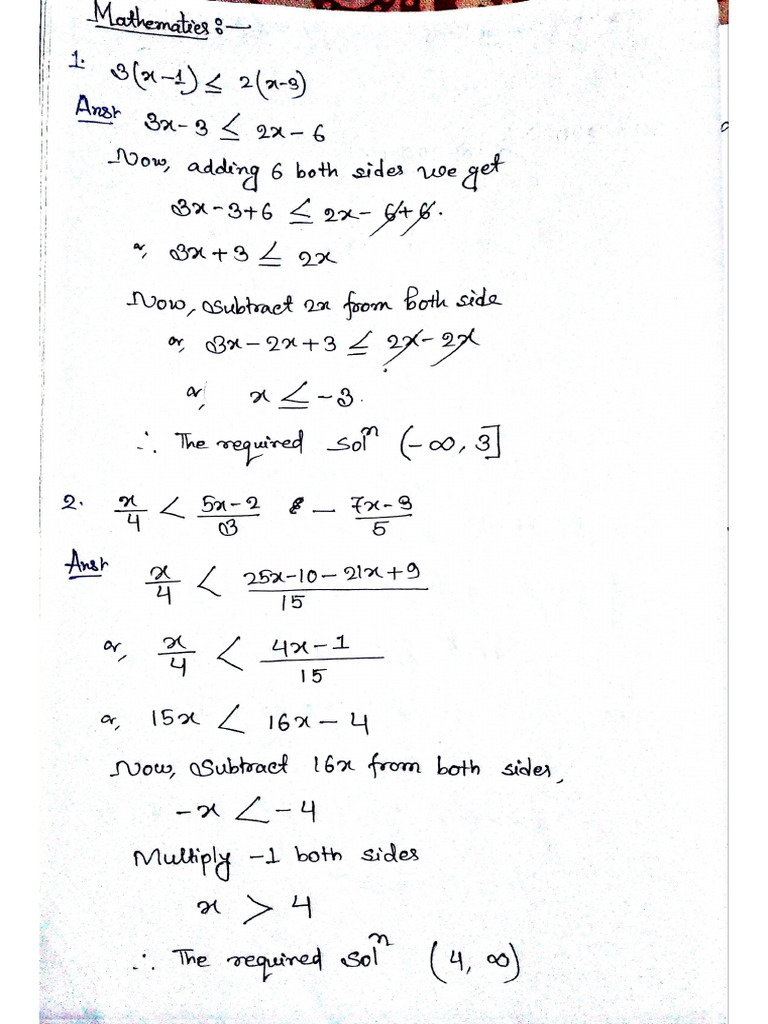 Mathematics :-
1. 3(x-1) ≤ 2(x-3)
Ansr 3x-3 ≤ 2x-6
Now, adding 6 both sides we get
3x-3+6 ≤ 2x-6+6.
or, 3x+3 ≤ 2x
Now, Subtract 2x from both side
or, 3x-2x+3 ≤ 2x-2x
or, x ≤ -3.
∴ The required solⁿ (-∞, 3]
2. x/4 < (5x-2)/3 - (7x-3)/5
Ansr x/4 < (25x-10-21x+9)/15
or, x/4 < (4x-1)/15
or, 15x < 16x-4
Now, Subtract 16x from both sides,
-x < -4
Multiply -1 both sides
x > 4
∴ The required solⁿ (4, ∞)